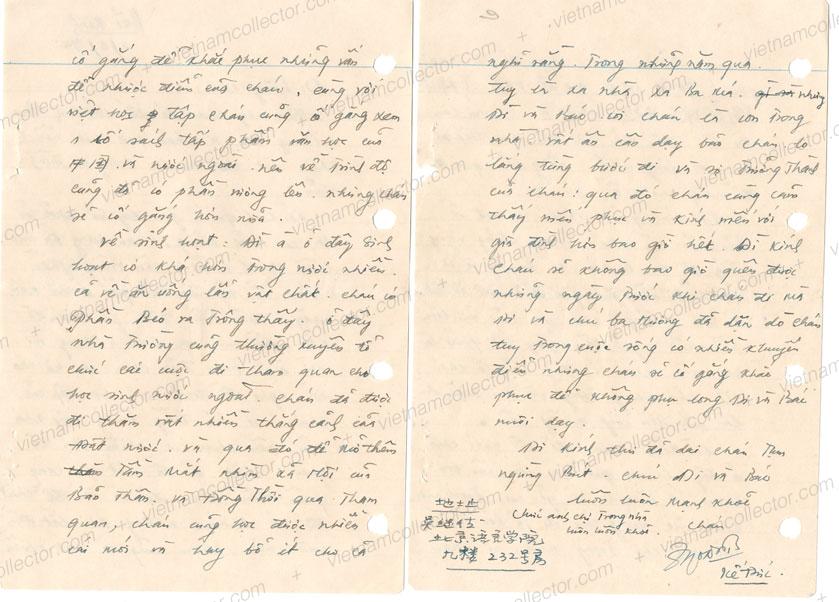 cố gắng để khắc phục những vấn
đề nhược điểm của cháu, cùng với
việc học tập cháu cũng cố gắng xem
1 số sách tập phẩm văn học của
中国 và nước ngoài nên về trình độ
cũng có phần mỏng lên. nhưng cháu
sẽ cố gắng hơn nữa.
Về sinh hoạt: Dì ạ ở đây sinh
hoạt có khá hơn trong nước nhiều.
cả về ăn uống lẫn vật chất. cháu có
phần béo ra trông thấy. ở đây
nhà trường cũng thường xuyên tổ
chức các cuộc đi tham quan cho
học sinh nước ngoài. cháu đã được
đi thăm rất nhiều thắng cảnh của
Đất nước. và qua đó để mở thêm
tầm mắt nhìn xã hội của
Bảo thân. và đồng thời qua tham
quan, cháu cũng học được nhiều
cái mới và hay bổ ích cho cả
nghĩ rằng. Trong những năm qua
tuy là xa nhà xa Ba Má. những
Dì và Bác coi cháu là con trong
nhà rất ân cần dạy bảo cháu
từng bước đi và sự trưởng thành
của cháu: qua đó cháu càng cảm
thấy mến phục và kính mến với
gia đình hơn bao giờ hết. Dì kính
cháu sẽ không bao giờ quên được
những ngày trước khi cháu đi mà
Dì và chú ba thường đã dặn dò cháu
tuy trong cuộc sống có nhiều khuyết
điểm nhưng cháu sẽ cố gắng khắc
phục để không phụ lòng Dì và Bác
nuôi dạy.
Dì kính thư đã dài cháu Tạm
ngừng Bút. chúc Dì và Bác
luôn luôn mạnh khoẻ
Chúc anh chị trong nhà
luôn luôn khoẻ.
cháu
地址
北京语言学院
九楼 232号房